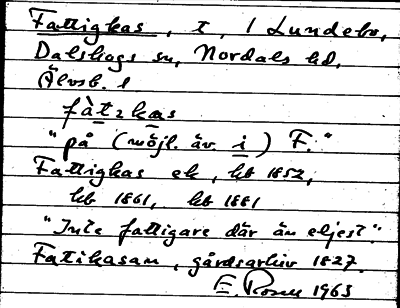 Fattigkas, t, / Lundebo,
Dalskogs sn, Nordals hd,
Älvsb. l
fàt2kas
"på (möjl. äv. i) F."
Fattigkas ek, kb 1852,
kb 1861, kb 1881
"Inte fattigare där än eljest".
Fatikasan, gårdsarkiv 1827.
E. Rosen 1963